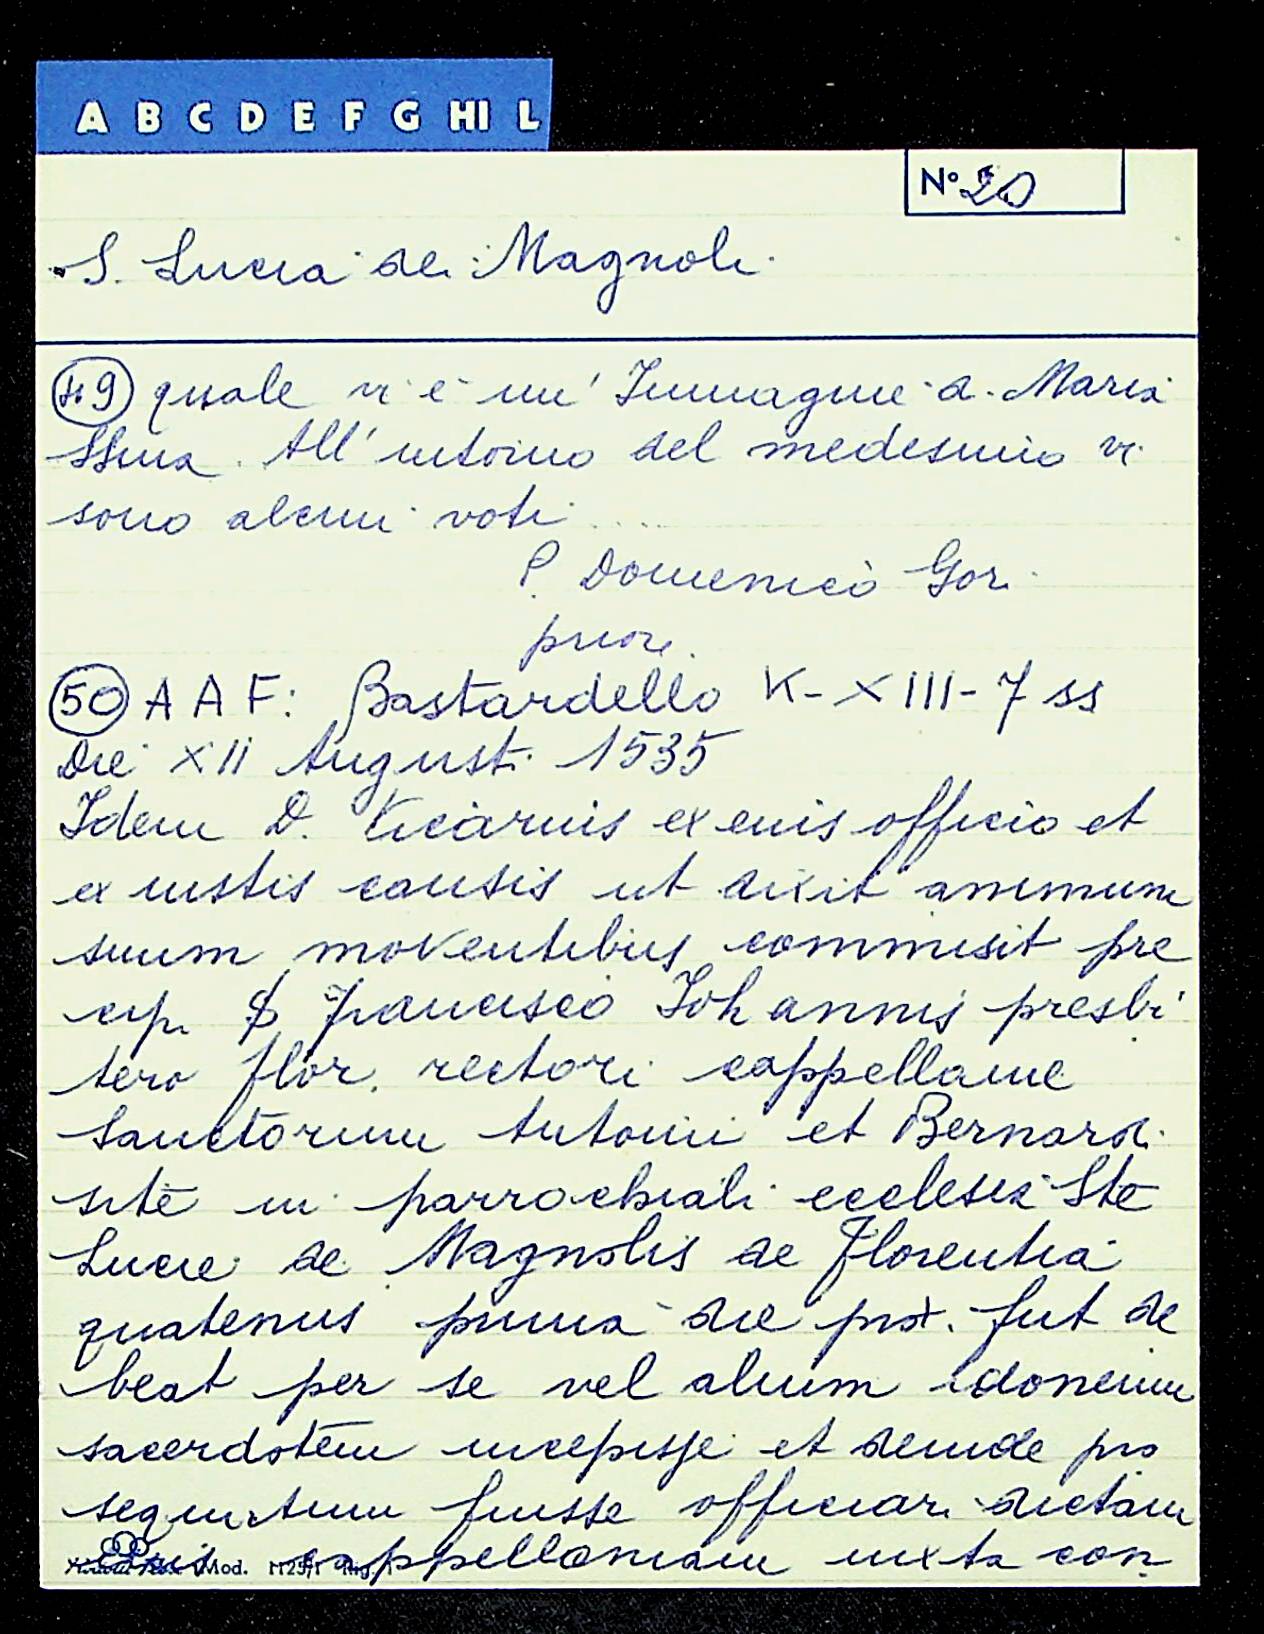 A B C D E F G HI L
N° 20
S. Lucia dei Magnoli
49 quale vi è un' Immagine di Maria
SSma. All' intorno del medesimo vi
sono alcuni voti ....
P. Domenico Gori
priore.
50 A A F: Bastardello K-XIII-7 ss
Die XII Augusti 1535
Idem D. Vicarius ex eius officio et
ex iustis causis ut dixit animum
suum moventibus commisit pre
cip. S Francisco Iohannis presbi
tero flor. rectori cappellanie
Sanctorum Antonii et Bernardi
site in parrochiali ecclesia Ste
Lucie de Magnolis de Florentia
quatenus prima die prox. fut de
beat per se vel alium idoneum
sacerdotem incepisse et deinde pro
sequutum fuisse officiari dictam
cappellaniam iuxta con
Mod.